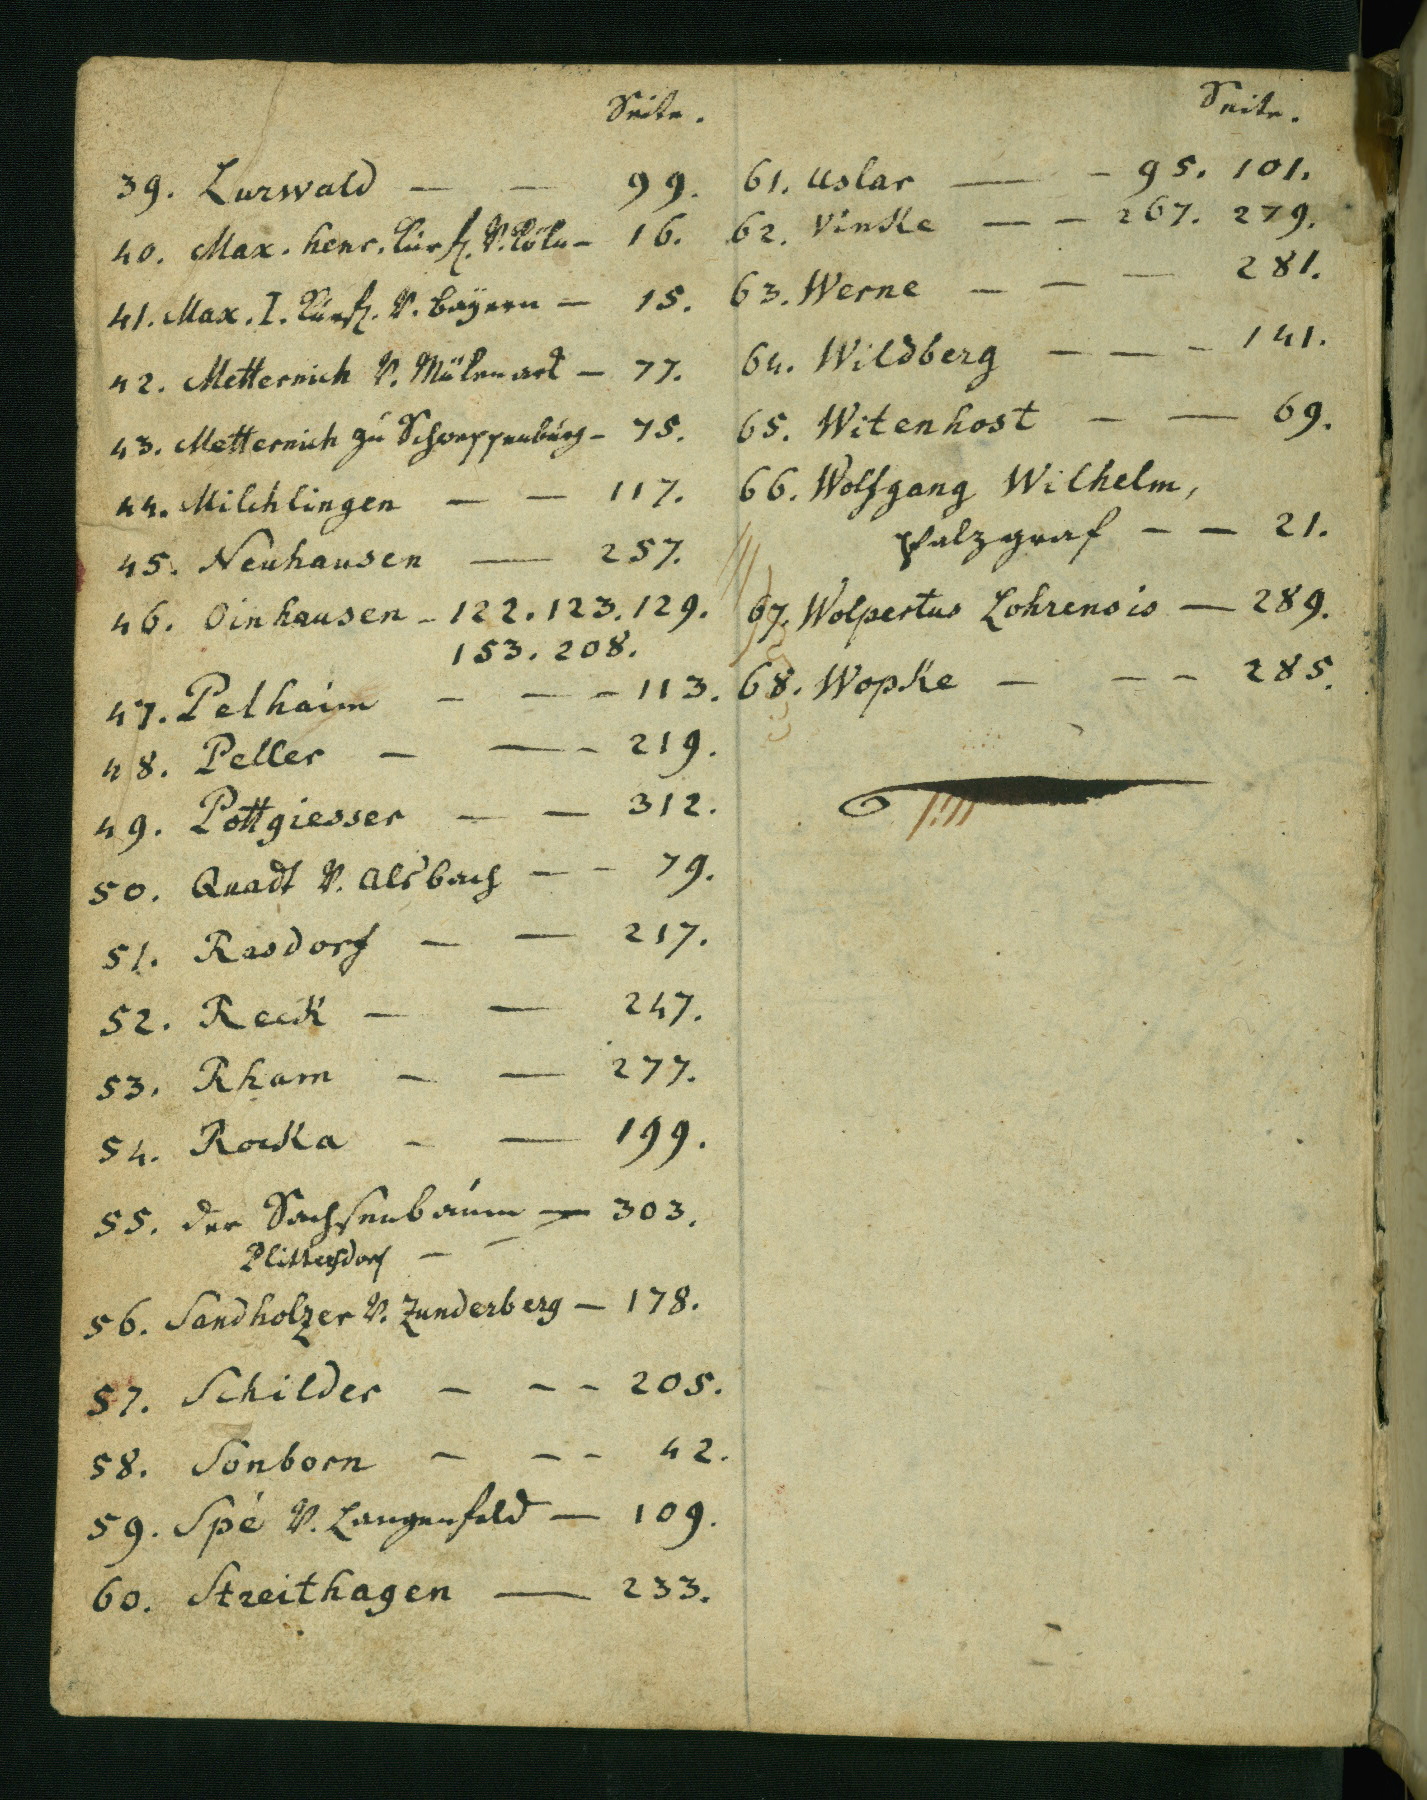 Seite.
39. Lurwald — — 99.
40. Max. Henr. Curf. v. Cöln — 16.
41. Max. I. Curf. v. Bayern — 15.
42. Metternich v. Mülenart — 77.
43. Metternich zu Schweppenburg — 75.
44. Milchlingen — — 117.
45. Neuhausen — 257.
46. Oinhausen — 122. 123. 129.
153. 208.
47. Pelhaim — — — 113.
48. Peller — — — 219.
49. Pottgiesser — — 312.
50. Quadt v. Alsbach — — 79.
51. Rasdorf — — 217.
52. Reck — — 247.
53. Rham — — 277.
54. Rocka — — 199.
55. der Sachsenbaum — 303.
Plittersdorf — —
56. Sandholzer v. Zunderberg — 178.
57. Schilder — — — 205.
58. Sonborn — — — 42.
59. Spé v. Langenfeld — 109.
60. Streithagen — 233.
Seite.
61. Uslar — — 95. 101.
62. Vinke — — 267. 279.
63. Werne — — — 281.
64. Wildberg — — — 141.
65. Witenhost — — 69.
66. Wolfgang Wilhelm,
Pfalzgraf — — 21.
67. Wolpertus Lohrensis — 289.
68. Wopke — — — 285.